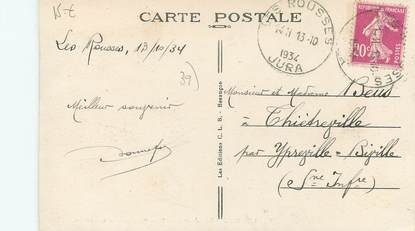 N-E
CARTE POSTALE
Les Rousses, 13/10/34
39
Meilleur souvenir
Les Editions C. L. B. - Besançon
LES ROUSSES
13-10
1934
JURA
20c
Monsieur et Madame Beus
à Thiétreville
par Ypreville-Biville
(Sne Infre)